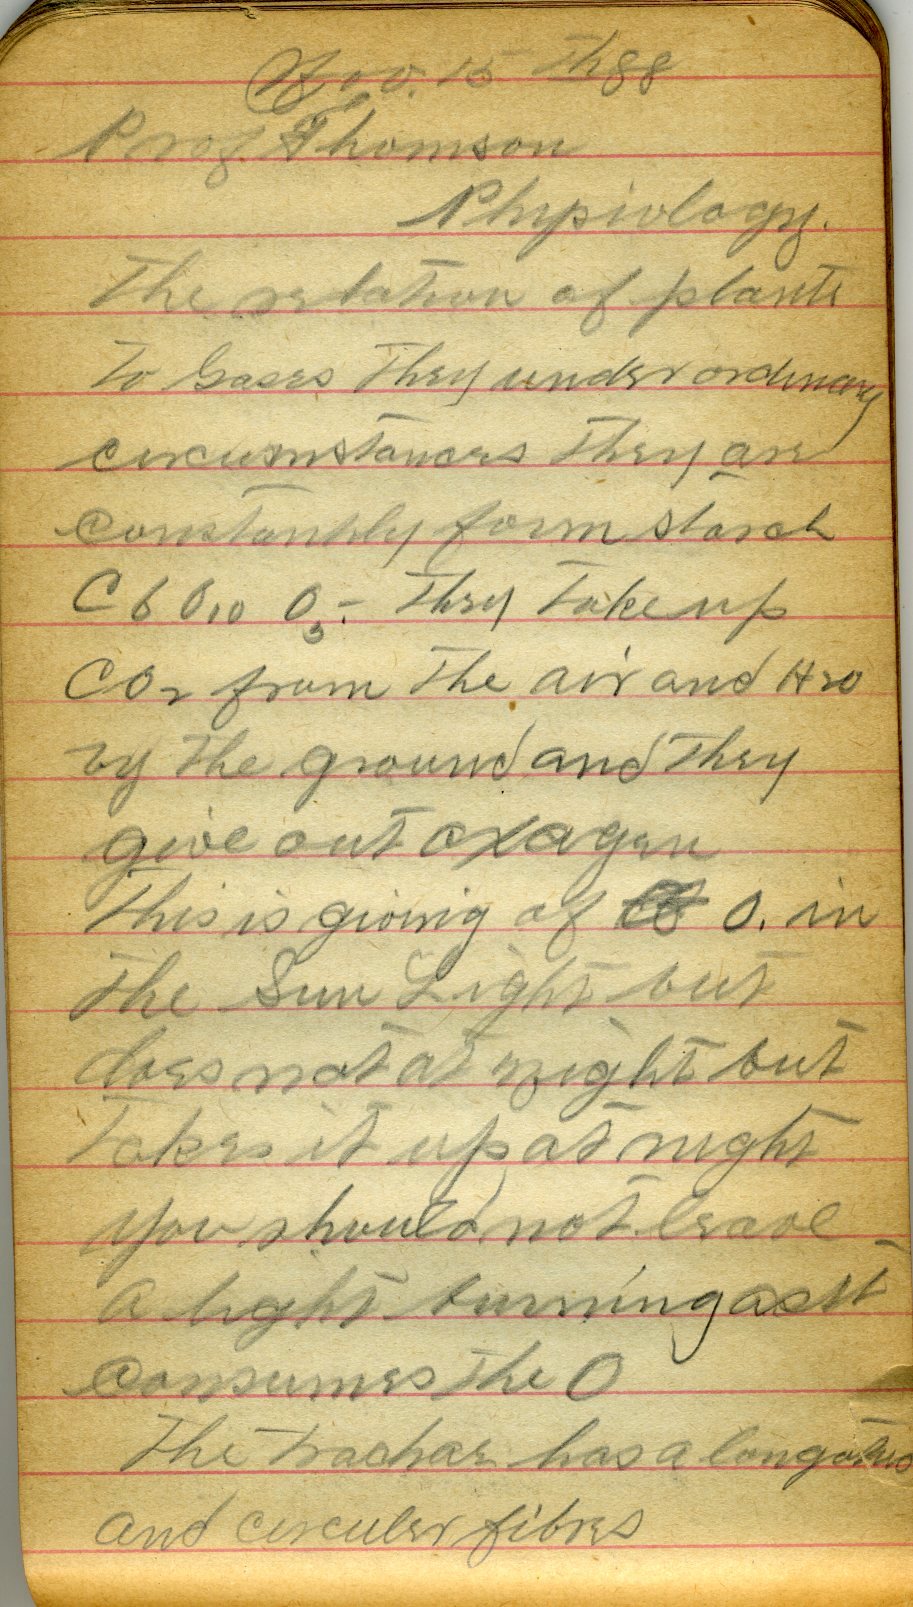 Nov. 15 Th 88
Prof. Thomson
Physiology.
The relation of plants
To Gases They under ordinary
circumstances They are
constantly form starch
C 6 O10 O5 - They Take up
CO2 from The air and H2O
by The ground and They
give out oxagen
This is giving of O. in
The Sun Light but
does not at night but
Takes it up at night
You should not leave
a light burning as it
consumes The O
The Trachae has a long
and circuler fibres